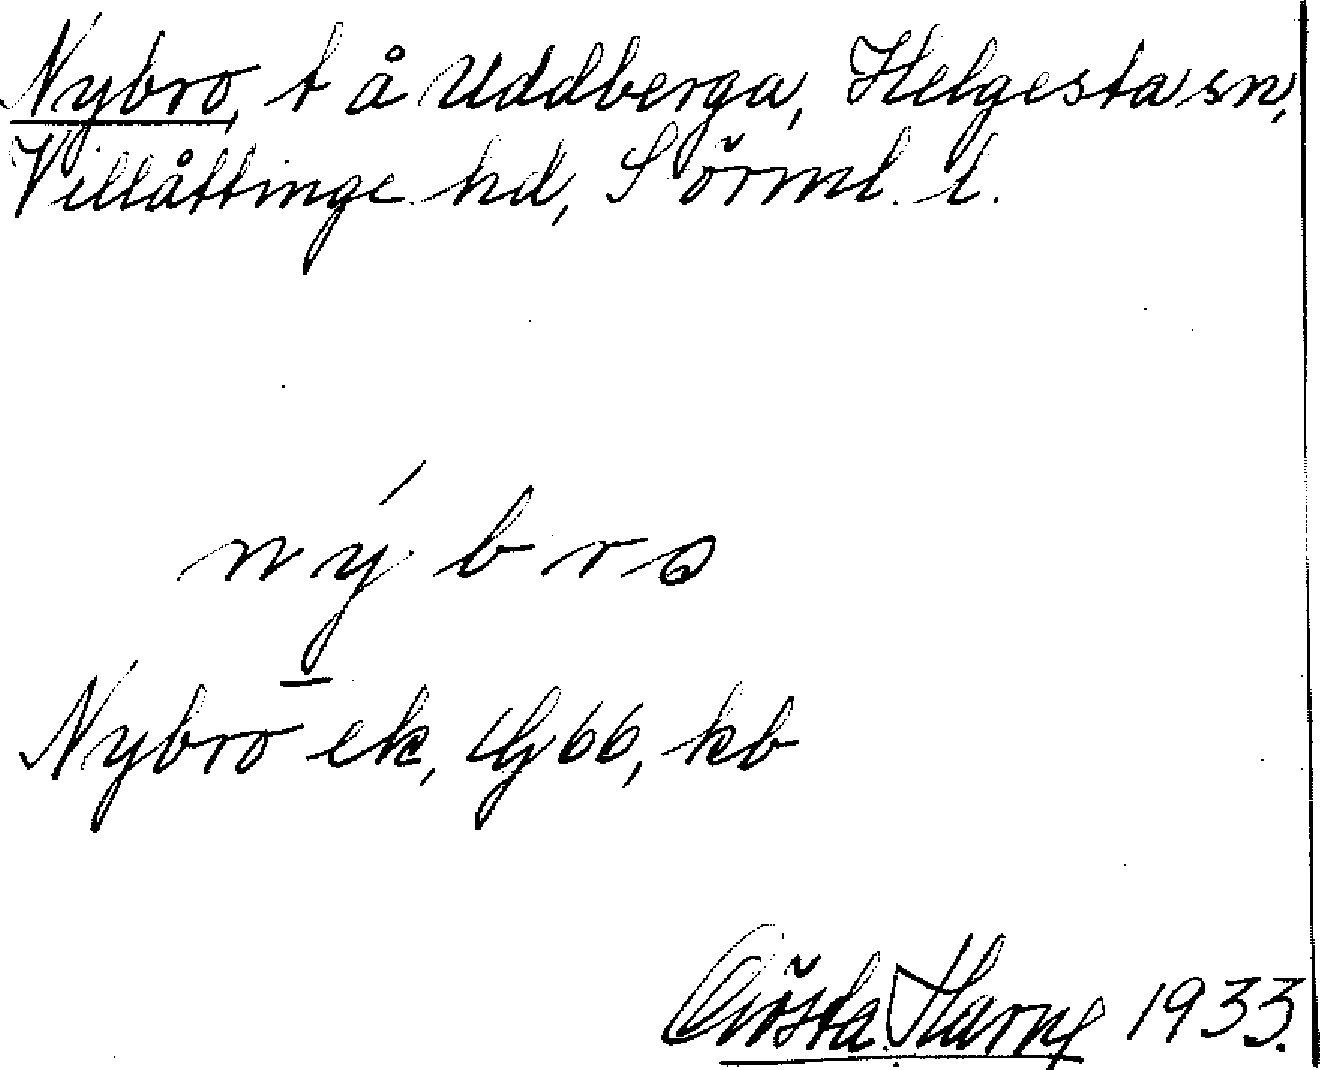 Nybro, t å Uddberga, Helgesta sn,
Villåttinge hd, Sörml. l.
nýbro
Nybro ek, Gj 66, kb
Gösta Harne 1933.